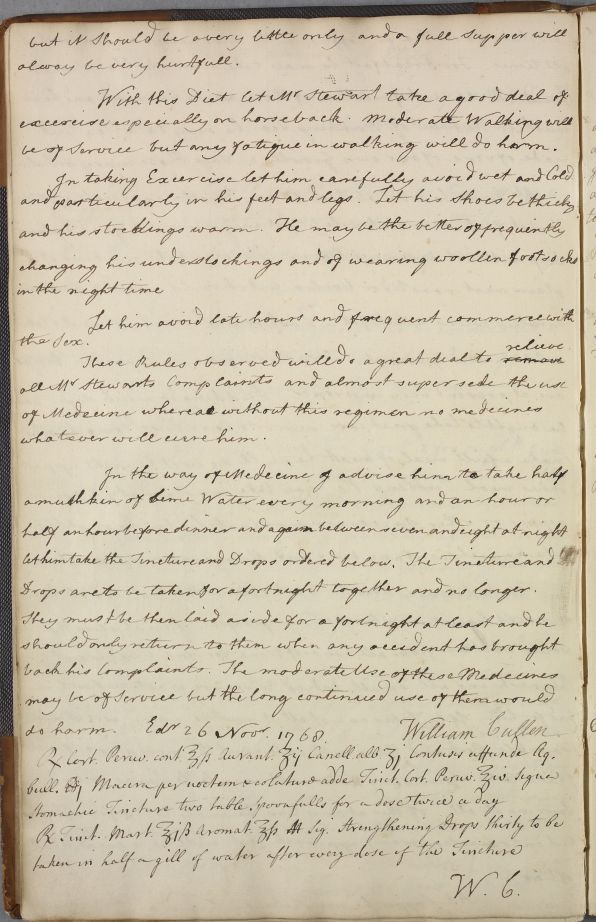 but it should be a very little only and a full supper will
alway be very hurtfull.
With this Diet let Mr Stewart take a good deal of
excercise especially on horseback. Moderate Walking will
be of Service but any fatigue in walking will do harm.
In taking Excercise let him carefully avoid wet and Cold
and particularly in his feet and legs. Let his Shoes be thick,
and his stockings warm. He may be the better of frequently
changing his understockings and of wearing woollen footsocks
in the night time
Let him avoid late hours and frequent commerce with
the Sex.
These Rules observed will do a great deal to remove relieve
all Mr Stewarts Complaints and almost supersede the use
of Medecine whereas without this regimen no medecines
whatever will cure him.
In the way of Medecine I advise him to take half
a mutchkin of Lime Water every morning and an hour or
half an hour before dinner and again between seven and eight at night
let him take the Tincture and Drops ordered below. The Tincture and
Drops are to be taken for a fortnight together and no longer.
They must be then laid aside for a fortnight at least and he
should only return to them when any accident has brought
back his Complaints. The moderate Use of these Medecines
may be of Service but the long continued use of them would
do harm. Edr 26 Novr. 1768. William Cullen
℞ Cort. Peruv. cont ℥ſs Aurant. ʒij Canell alb ʒj Contusis affunde Aq.
bull. ℔j Macera per noctem & colaturæ adde Tinct. Cort. Peruv. ℥iv Signa
Stomachic Tincture two table spoonfulls for a dose twice a day
℞ Tinct. Mart ℥jß Aromat. ℥ſs M Sig. Strengthening Drops thirty to be
taken in half a gill of water after every dose of the Tincture
W. C.